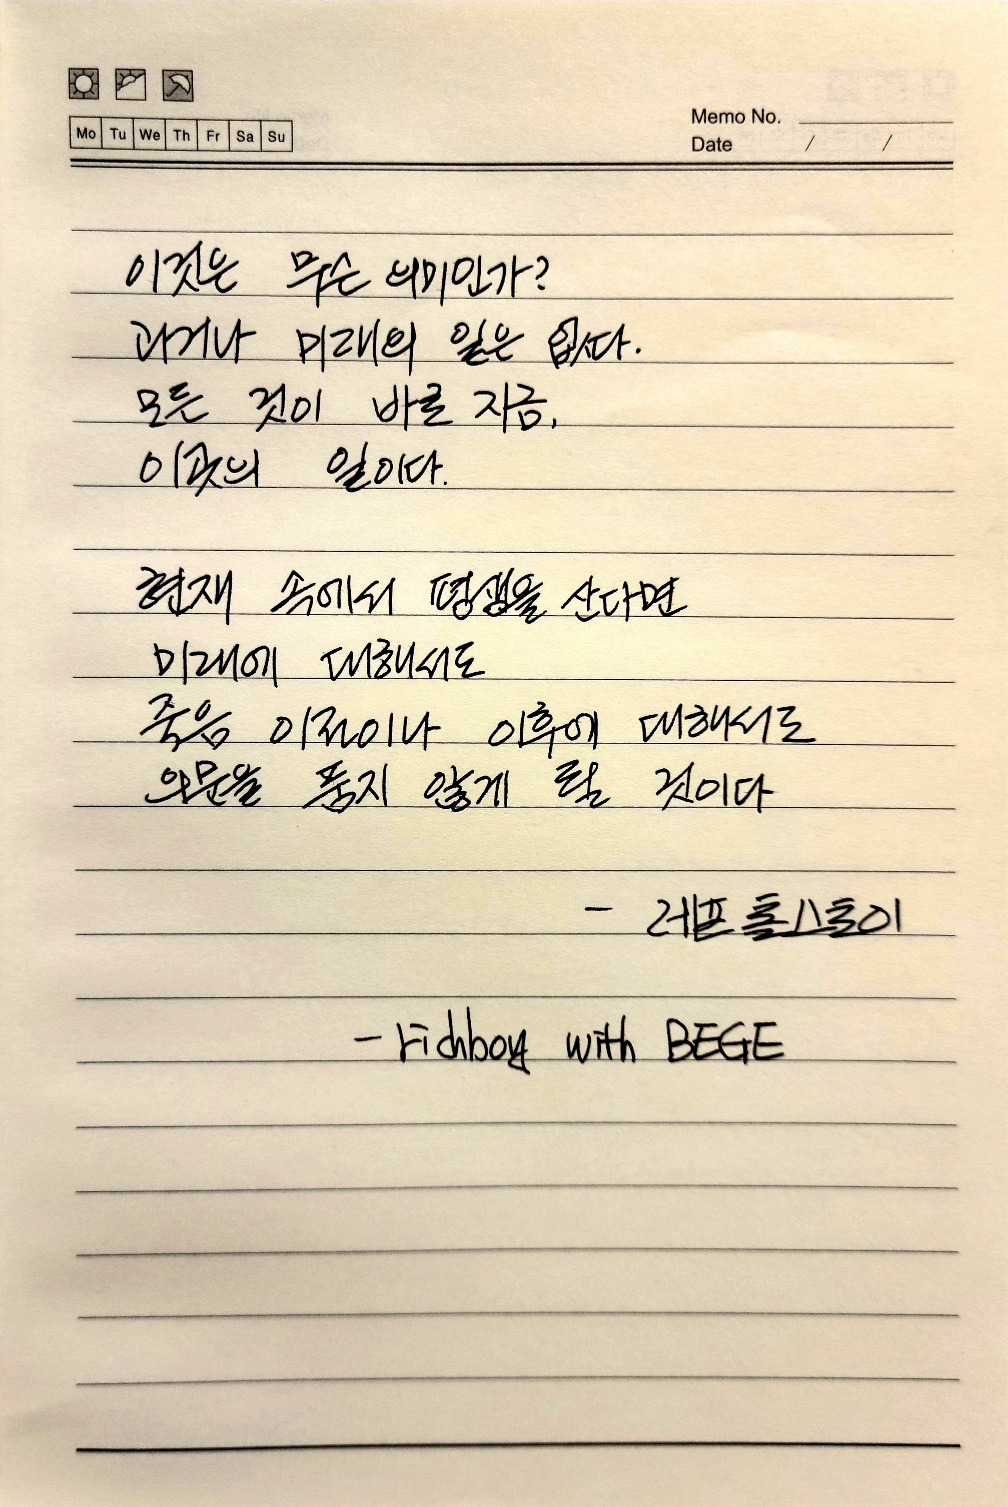 Mo Tu We Th Fr Sa Su
Memo No.
Date / /
이것은 무슨 의미인가?
과거나 미래의 일은 없다.
모든 것이 바로 지금,
이곳의 일이다.
현재 속에서 평생을 산다면
미래에 대해서도
죽음 이전이나 이후에 대해서도
의문을 품지 않게 될 것이다
- 레프 톨스토이
- richboy with BEGE